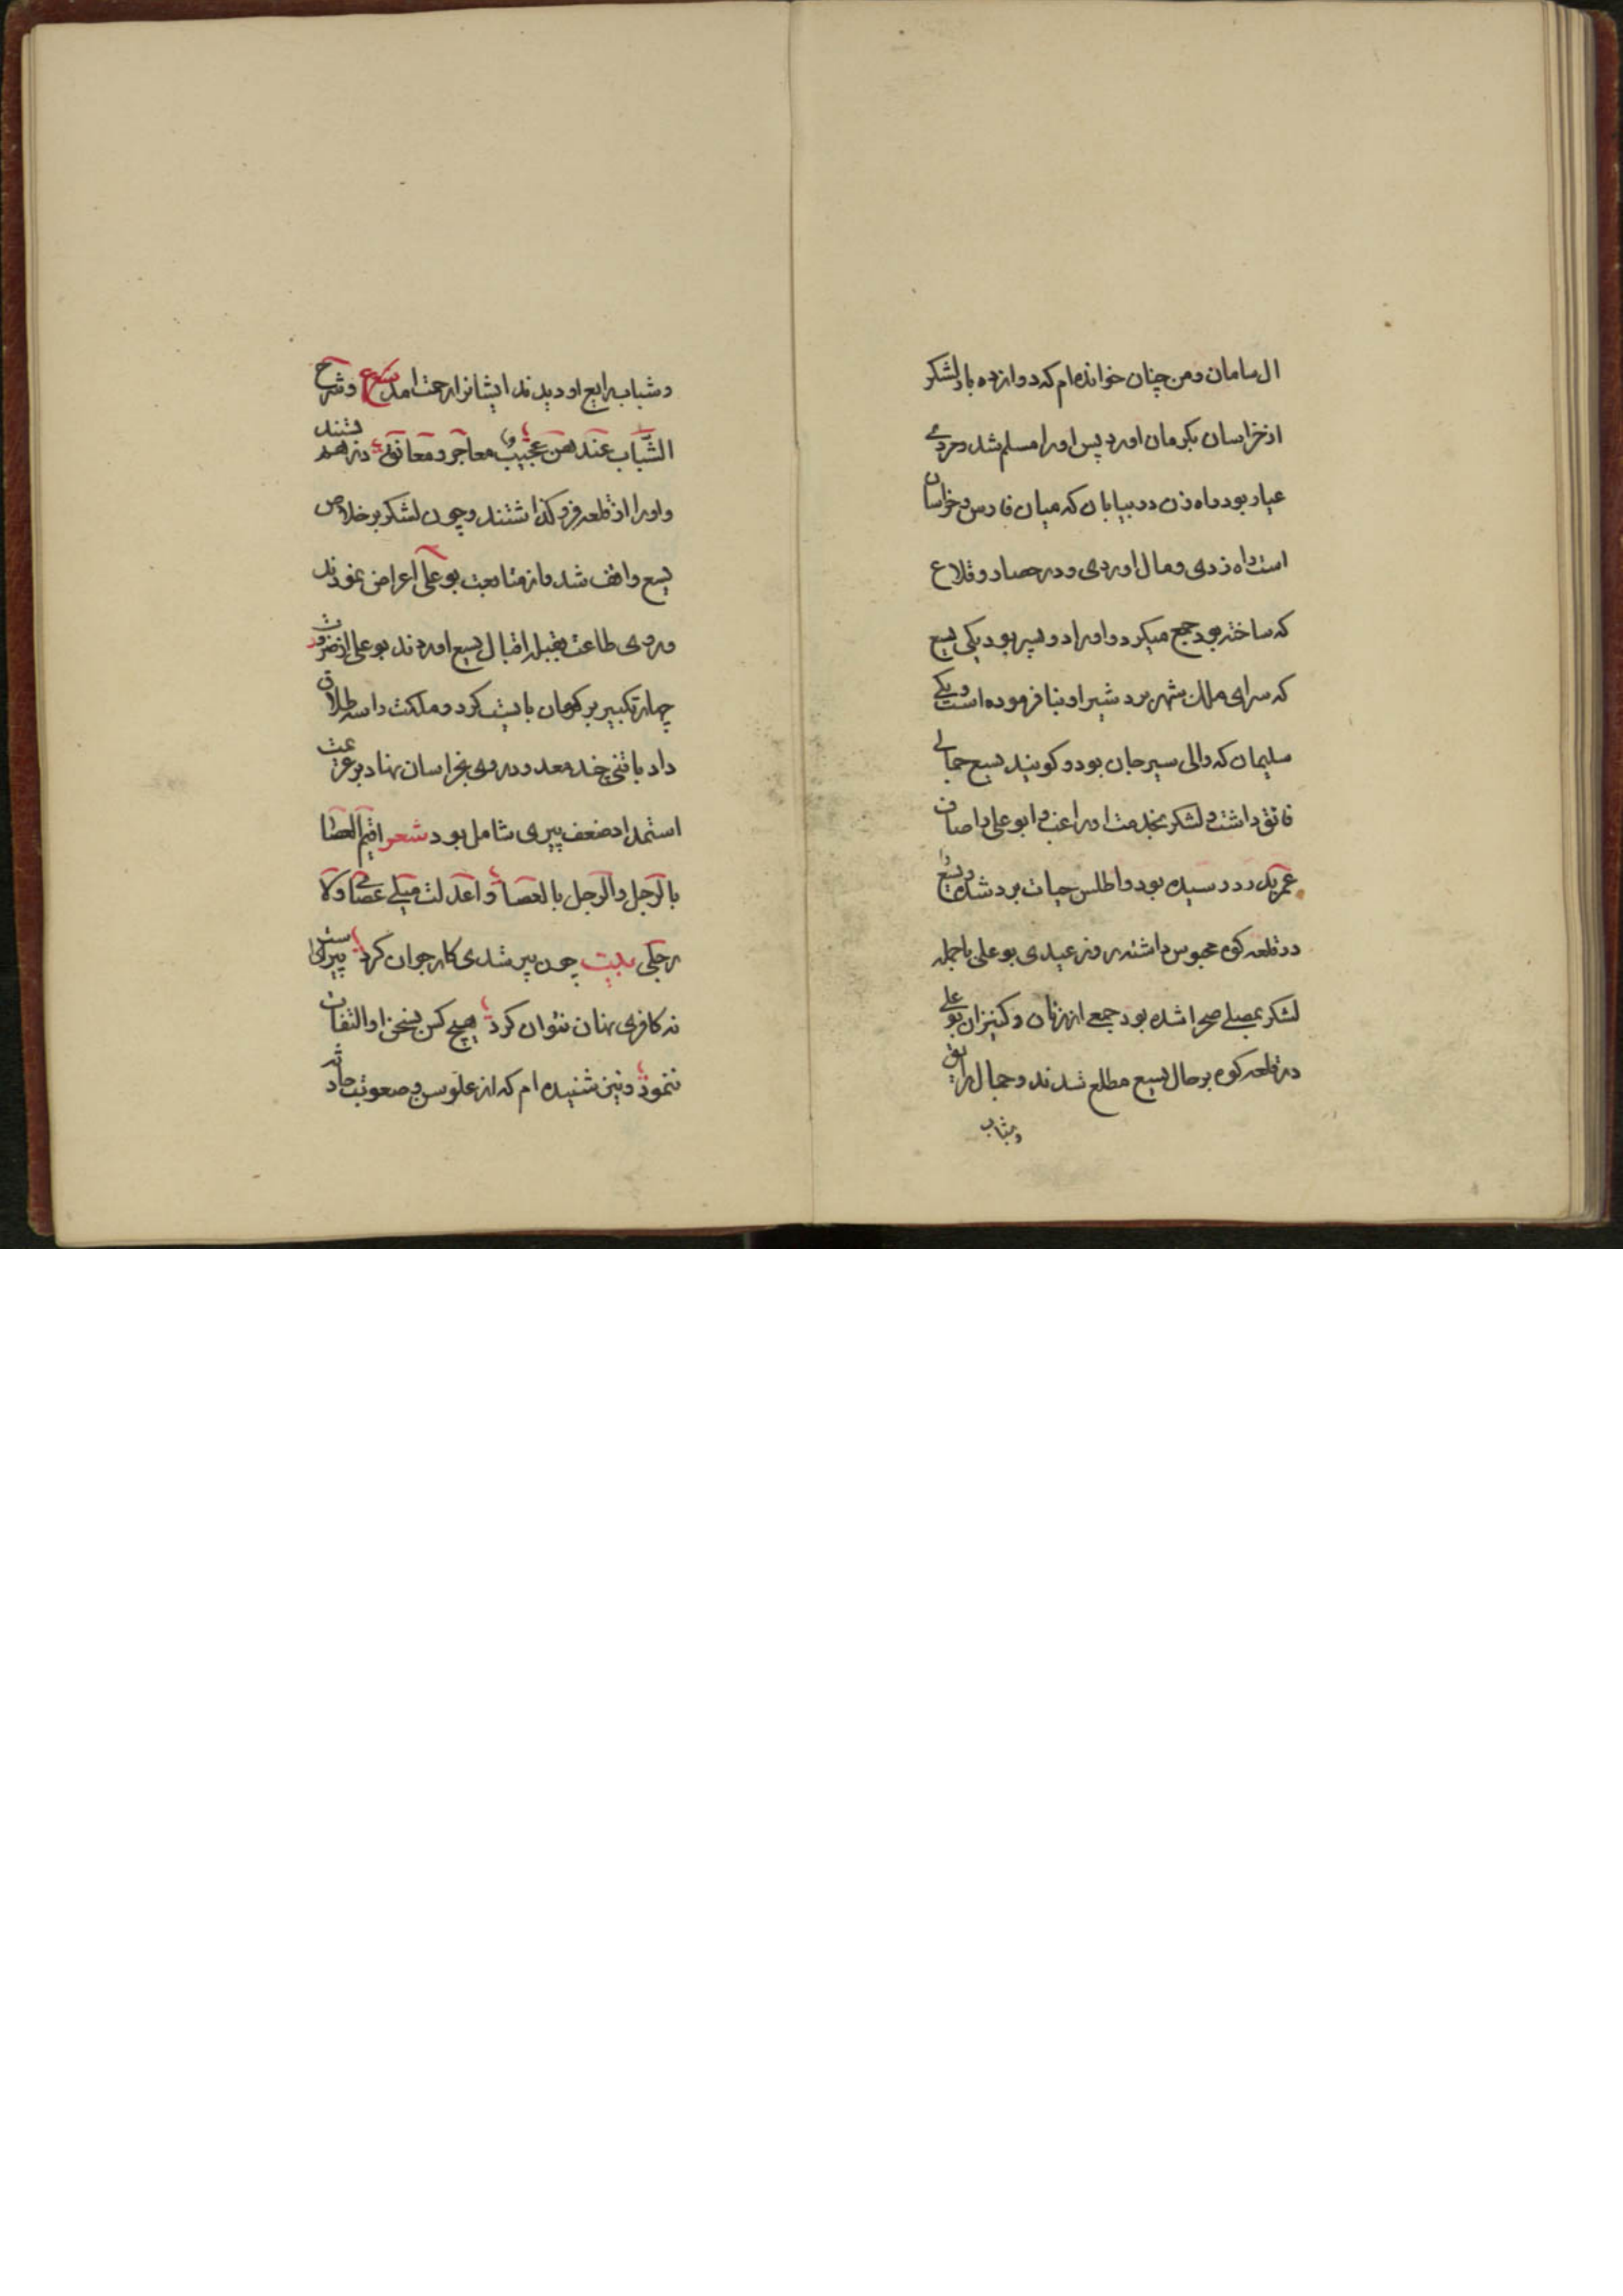 ال سامان ومن چنان خوانده ام که دوازده بار لشکر
از خراسان بکرمان اورد پس اورا مسلم شد ومردی
عیار بود راه زن در بیابان که میان فارس وخراسان
است راه زدی ومال اوردی ودر حصار وقلاع
که ساخته بود جمع میکرد واورا دو پسر بود یکی یسع
که سرای ملک بشهر بردشیر او بنا فرموده است ویکی
سلیمان که والی سیرجان بود وکویند یسع جمالی
فائق داشت ولشکر بخدمت او راغب وابو علی را صاف
عمر بدرد رسیده بود واطلس حیات برد شده ویسع را
در قلعه کوه محبوس داشته روز عیدی بو علی باجمله
لشکر بمصلی صحرا شده بود جمعی از زنان وکنیزان بو علی
در قلعه کوه بر حال یسع مطلع شدند وجمال رایق
وشباب
وشباب رایع او دیدند ایشانرا رحمت امد شعر وشرخ
الشباب عندهن عجیب معاجر ومعانق در هم بستند
واورا از قلعه فرو کذاشتند وچون لشکر بر خلاص
یسع واقف شد واز متابعت بو علی اعراض نمودند
وروی طاعت بقبله اقبال یسع اوردند بو علی از ضرورت
چهار تکبیر بر کرمان بایست کرد ومملکت را سه طلاق
داد باتنی چند معدود روی بخراسان نهاد بر عزیمت
استمداد ضعف پیری شامل بود شعر اقیم العصا
بالرجل والرجل بالعصا واعدلت میلی عصای ولا
رجلی بیت چون پیر شدی کار جوان نتوان کرد پیریست
نه کافری نهان نتوان کرد هیچ کس بسخن او التفات
ننمود ونیز شنیده ام که از علو سن وصعوبت حادثه